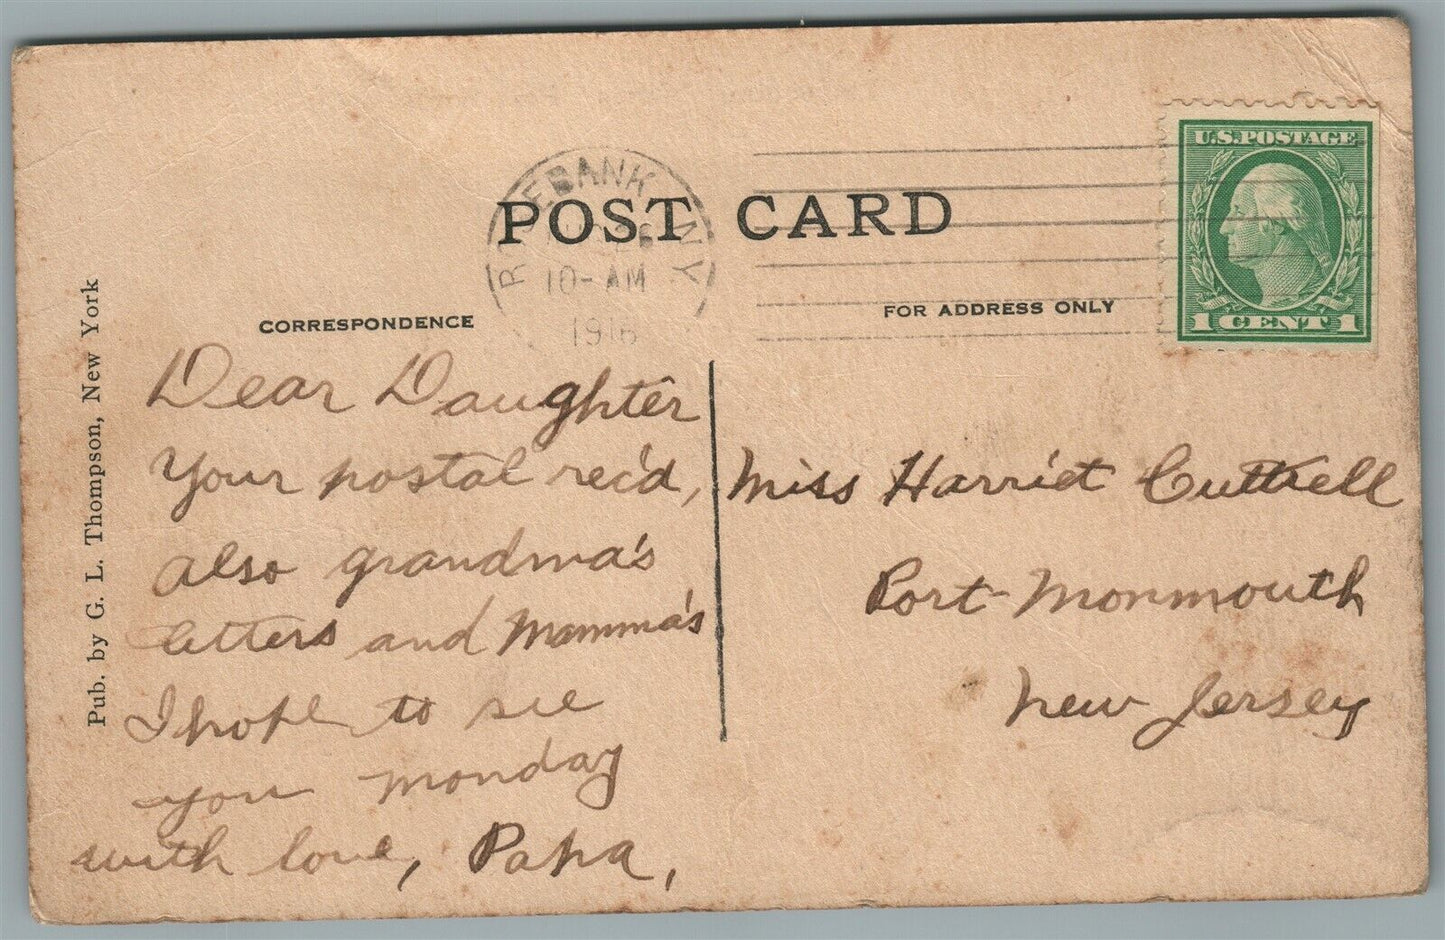 POST CARD
EBANK N.Y.
10-AM
1916
U.S. POSTAGE
1 CENT 1
CORRESPONDENCE
FOR ADDRESS ONLY
Pub. by G. L. Thompson, New York
Dear Daughter
Your postal rec'd,
also grandma's
letters and Mamma's
I hope to see
you monday
with love, Papa,
Miss Harriet Cuttrell
Port-Monmouth
New Jersey